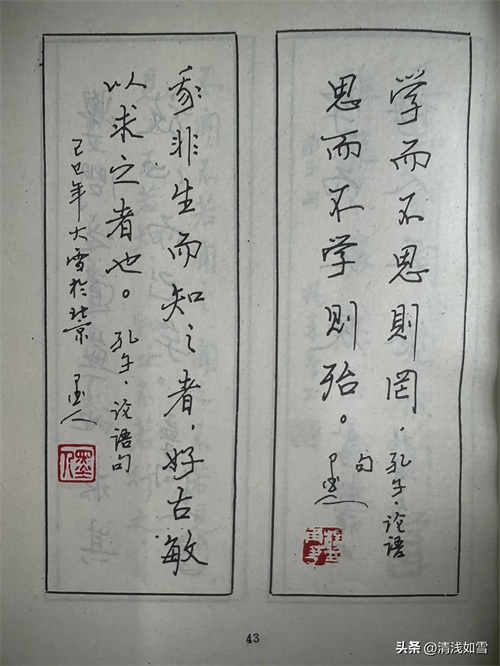 学而不思則罔，
思而不学则殆。
孔子·论语
句
墨人
我非生而知之者，好古敏
以求之者也。孔子·论语句
己巳年大雪於北京 墨人
墨人
43
头条 @清浅如雪